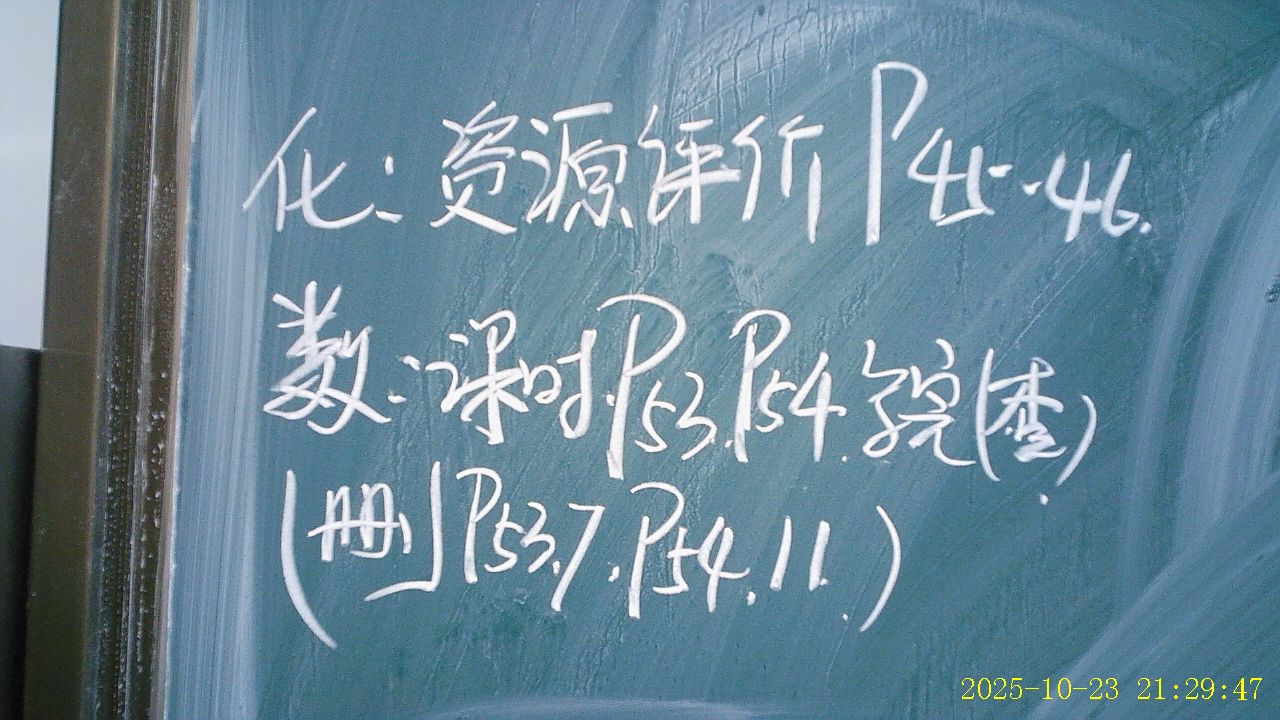 化:资源评价 P45-46.
数:课时P53.P54.完(查).
(删P53.7.P54.11.)
2025-10-23 21:29:47